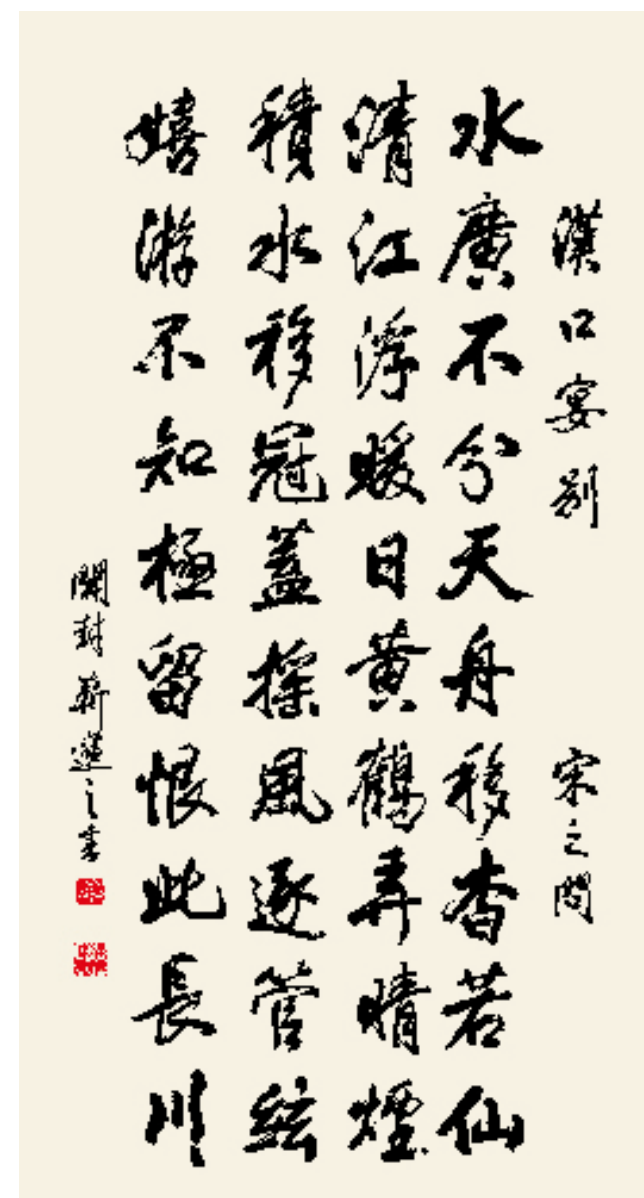 漢口宴別 宋之問
水廣不分天舟移杳若仙
清江浮暖日黄鶴弄晴煙
積水移冠蓋搖風逐管絃
嬉游不知極留恨此長川
開封靳選之書